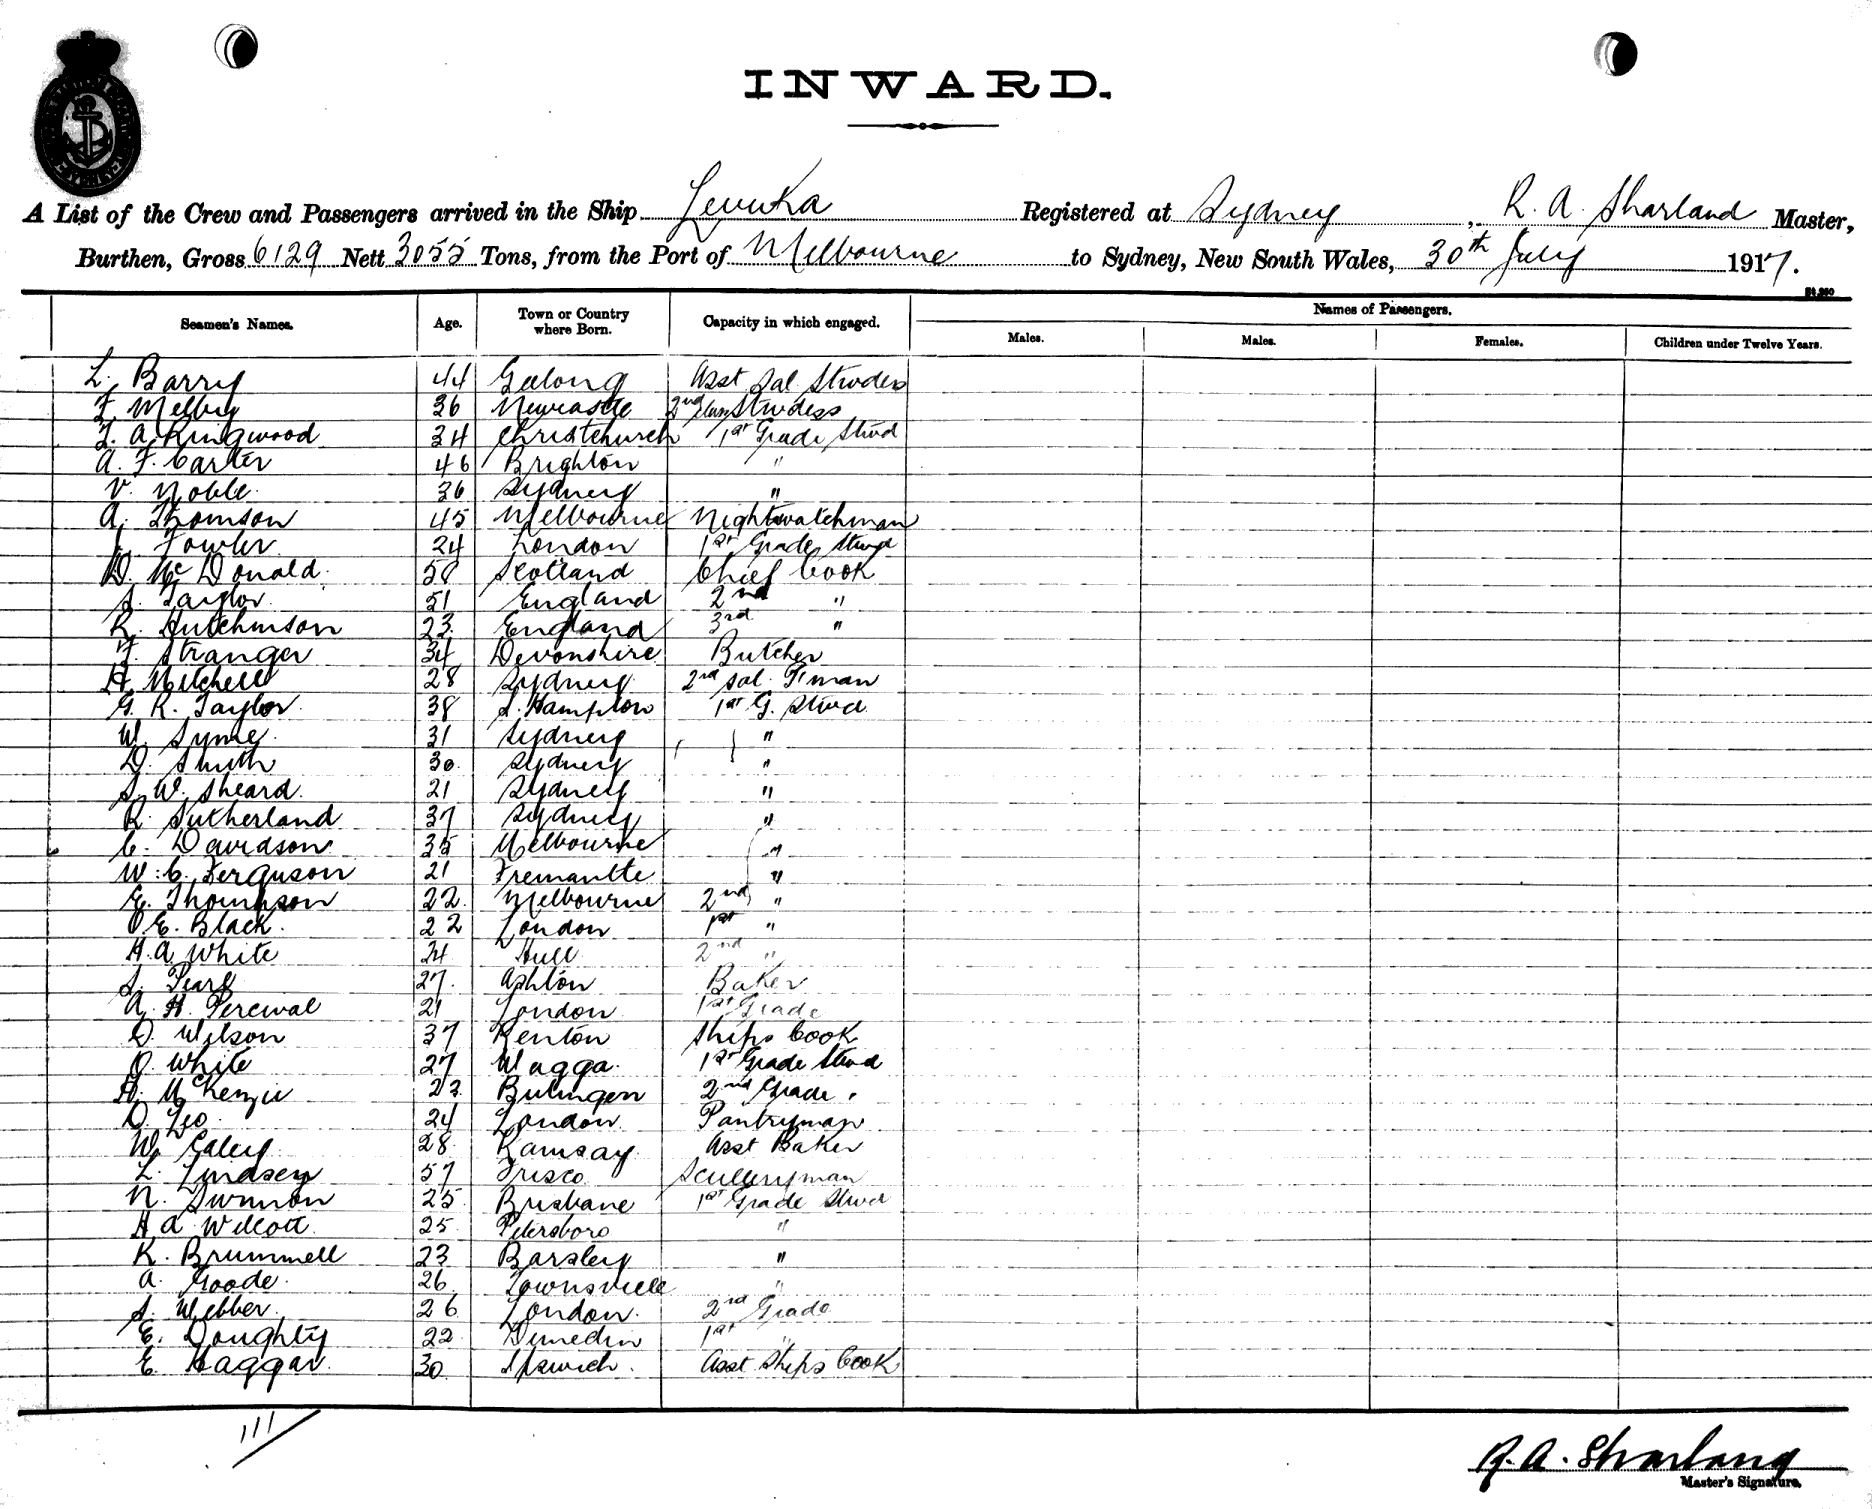 INWARD.
A List of the Crew and Passengers arrived in the Ship Levuka Registered at Sydney, R. A. Sharland Master,
Burthen, Gross 6129 Nett 3055 Tons, from the Port of Melbourne to Sydney, New South Wales, 30th July 1917.
Names of Passengers.
Seamen's Names. Age. Town or Country where Born. Capacity in which engaged. Males. Males. Females. Children under Twelve Years.
L. Barry 44 Geelong Asst Sal Stwdess
F. Melby 36 Newcastle 2nd Class Stwdess
F. A. Ringwood 34 Christchurch 1st Grade Stwd
A. F. Carter 46 Brighton "
V. Noble 36 Sydney "
A. Thomson 45 Melbourne Nightwatchman
Fowler 24 London 1st Grade Stwd
D. McDonald 58 Scotland Chief Cook
S. Taylor 51 England 2nd "
R. Hutchinson 23 England 3rd "
F. Stranger 34 Devonshire Butcher
H. Mitchell 28 Sydney 2nd Sal. P'man
G. R. Taylor 38 S. Hampton 1st G. Stwd
W. Syme 31 Sydney "
D. Smith 30 Sydney "
S. W. Sheard 21 Sydney "
R. Sutherland 37 Sydney "
C. Davidson 35 Melbourne "
W. C. Ferguson 21 Fremantle "
E. Thompson 22 Melbourne 2nd "
O. E. Black 22 London 1st "
H. A. White 24 Hull 2nd "
S. Pearl 27 Ashton Baker
A. H. Percival 21 London 1st Grade
D. Wilson 37 Kenton Ships Cook
O. White 27 Wagga 1st Grade Stwd
H. McKenzie 22 2nd Grade "
D. Leo 24 London Pantryman
W. Galey 28 Ramsay Asst Baker
L. Lindsey 57 Frisco Sculleryman
N. Swinton 25 Brisbane 1st Grade Stwd
H. A. Wilcott 25 Petersboro "
K. Brummell 23 Barsley "
A. Goode 26 Townsville "
S. Webber 26 London 2nd Grade
E. Doughty 22 Dunedin 1st "
E. Haggar 30 Ipswich Asst Ships Cook
111
R. A. Sharland
Master's Signature.